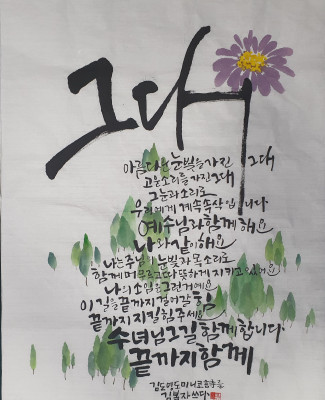 그대
아름다운 눈빛을 가진 그대
고운 소리를 가진 그대
그 눈과 소리로
우리에게 계속 속삭입니다
예수님과 함께 해요
나와 같이해요
나는 주님의 눈빛과 목소리로
함께 머무르고 따뜻하게 지키고 있어요
나의 소임은 그런거예요
이 길을 끝까지 걸어갈 힘
끝까지 지킬 힘 주세요
수녀님 그 길 함께 합니다
끝까지 함께
김도연도미니코
김봉자쓰다